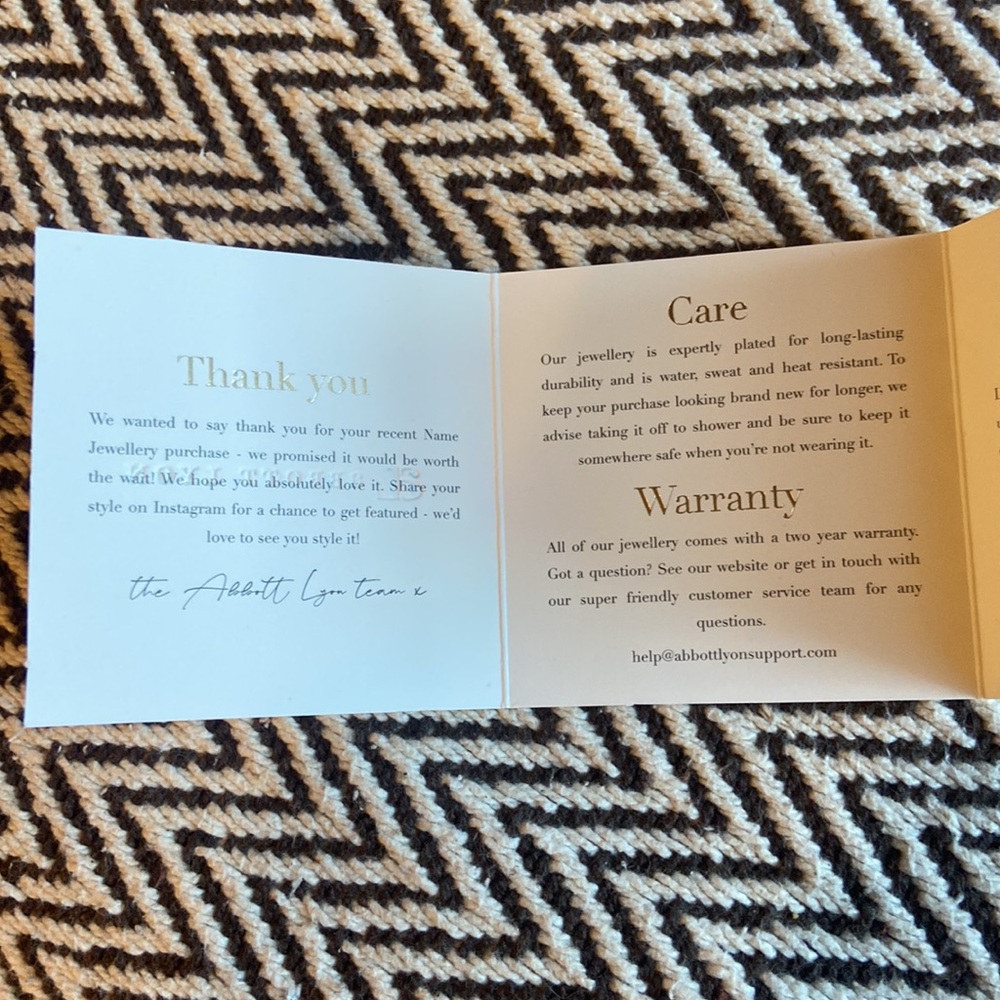 Thank you
We wanted to say thank you for your recent Name
Jewellery purchase - we promised it would be worth
the wait! We hope you absolutely love it. Share your
style on Instagram for a chance to get featured - we'd
love to see you style it!
the Abbott Lyon team x
Care
Our jewellery is expertly plated for long-lasting
durability and is water, sweat and heat resistant. To
keep your purchase looking brand new for longer, we
advise taking it off to shower and be sure to keep it
somewhere safe when you're not wearing it.
Warranty
All of our jewellery comes with a two year warranty.
Got a question? See our website or get in touch with
our super friendly customer service team for any
questions.
help@abbottlyonsupport.com